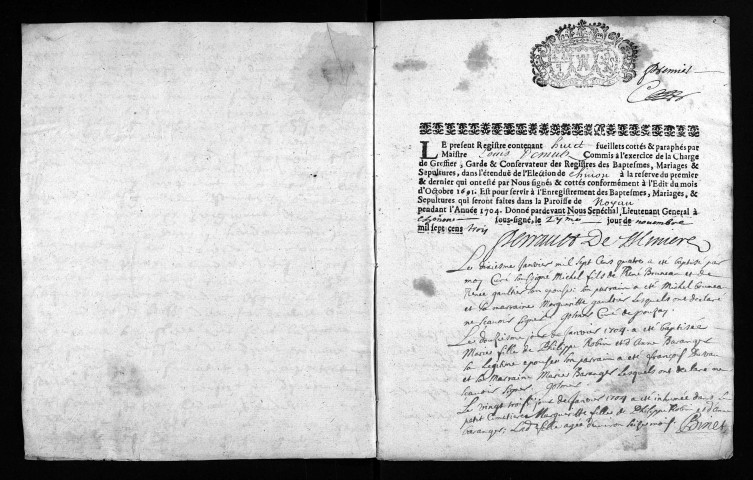 2
premier
LE present Registre contenant huict fueillets cottés & paraphés par
Maistre Louis Commis à l'exercice de la Charge
de Greffier, Garde & Conservateur des Registres des Baptesmes, Mariages &
Sepultures, dans l'étenduë de l'Election de chinon à la reserve du premier
& dernier qui ont esté par Nous signés & cottés conformément à l'Edit du mois
d'Octobre 1691. Est pour servir à l'Enregistrement des Baptesmes, Mariages, &
Sepultures qui seront faites dans la Paroisse de Noyau
pendant l'Année 1704. Donné pardevant Nous Senéchal, Lieutenant General à
Chinon sous-signé, le 27me jour de novembre
mil sept cens trois
Perrault De
Le janvier mil sept cens quatre a eté baptisé par
moy Curé soussigné Michel fils de René Bruneau et de
Renee gaultier son epouse. son parrain a eté Michel
et la marraine Marguerite gaultier lesquels ont declaré
ne scavoir signer Curé de
Le jour de janvier 1704 a eté baptisée
Marie fille de Philippe Robin et d'Anne Baranger
sa legitime epouse son parrain a eté françois
et la Marraine Marie Baranger lesquels ont declaré ne
scavoir signer
Le vingt trois jour de Janvier 1704 a eté inhumée dans le
petit Cimetiere Marguerite fille de Philippe Robin et d'Anne
baranger, Ladte fille agée d'environ Binet